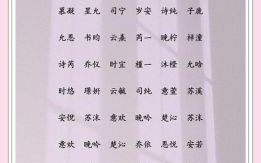 慕凝 星允 司宁 岁安 诗纯 子鹿
允恩 书昀 云熹 芮一 晚柠 梓潼
诗芮 乔仪 时宜 檀一 沐橙 允晗
时悠 瑾妍 云毓 司纯 意萱 苏溪
安悦 苏沫 意欢 晚吟 楚沁 苏沐
意欢 晚吟 楚沁 乔依 思悦 安若